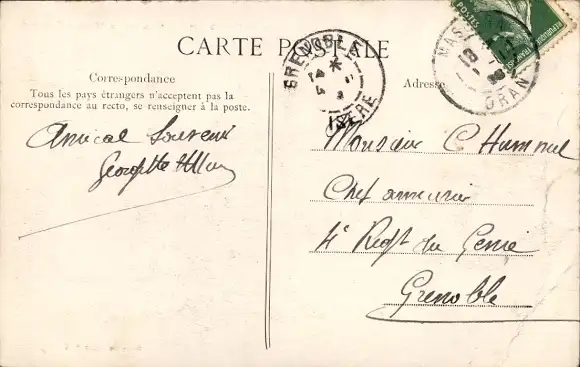 CARTE POSTALE
Correspondance
Tous les pays étrangers n'acceptent pas la
correspondance au recto, se renseigner à la poste.
Amical Souvenir
Georgette
Adresse
GRENOBLE
ISERE
MAS
ORAN
Monsieur C Hummel
Chef armurier
4e Regt du Genie
Grenoble